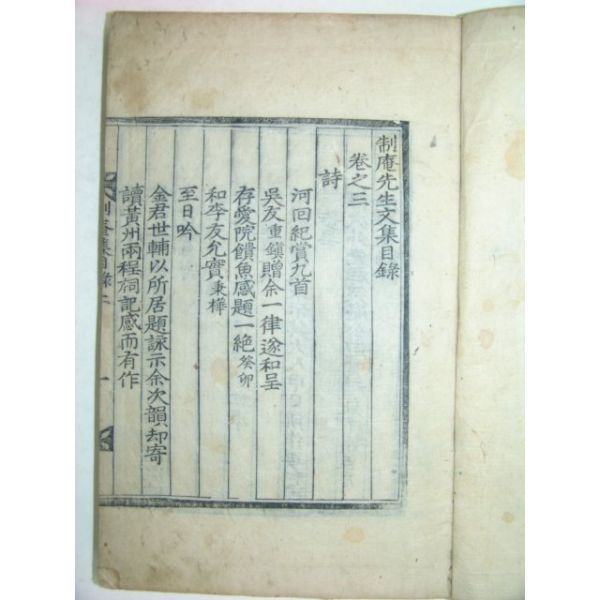 制庵先生文集目錄
卷之三
詩
河回紀賞九首
吳友重鎭贈余一律遂和呈
存愛院饋魚感題一絶癸卯
和李友允實秉樺
至日吟
金君世輔以所居題詠示余次韻却寄
讀黃州兩程祠記感而有作
制庵集目錄二
一